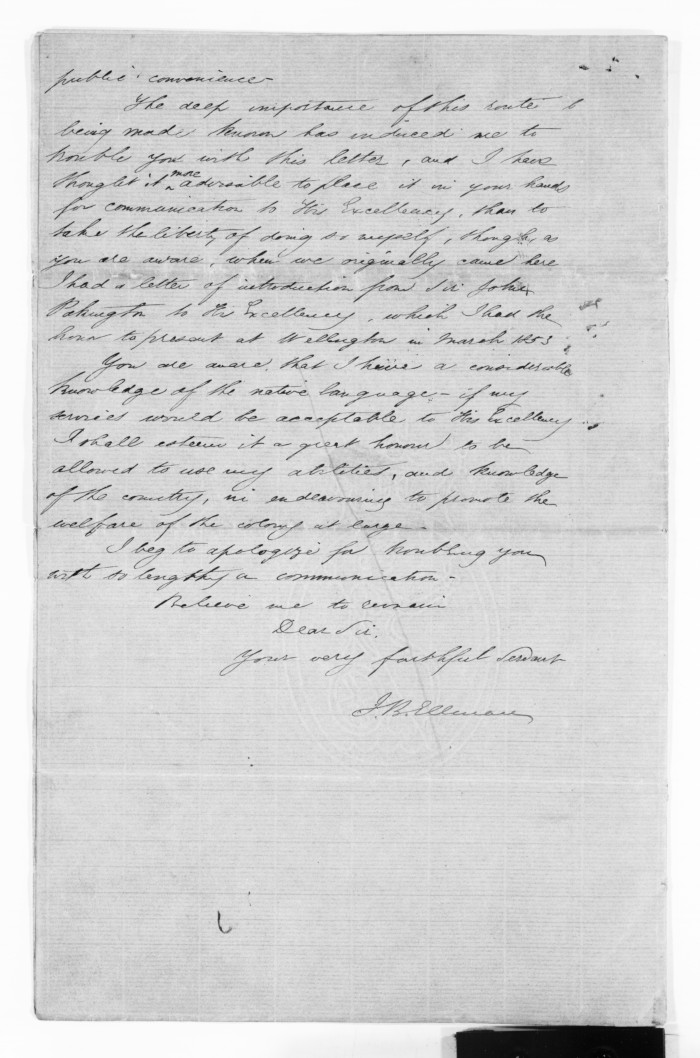 public convenience -
The deep importance of this route
being made known has induced me to
trouble you with this letter, and I have
thought it more advisable to place it in your hands
for communication to His Excellency, than to
take the liberty of doing so myself, though, as
you are aware, when we originally came here
I had a letter of introduction from Sir John
Pakington to His Excellency, which I had the
honor to present at Wellington in March 1853
You are aware, that I have a considerable
knowledge of the native language, - if my
services would be acceptable to His Excellency
I shall esteem it a great honour to be
allowed to use my abilities, and knowledge
of the country, in endeavouring to promote the
welfare of the colony at large -
I beg to apologize for troubling you
with so lengthy a communication -
Believe me to remain
Dear Sir.
Your very faithful Servant
J. B. Ellman